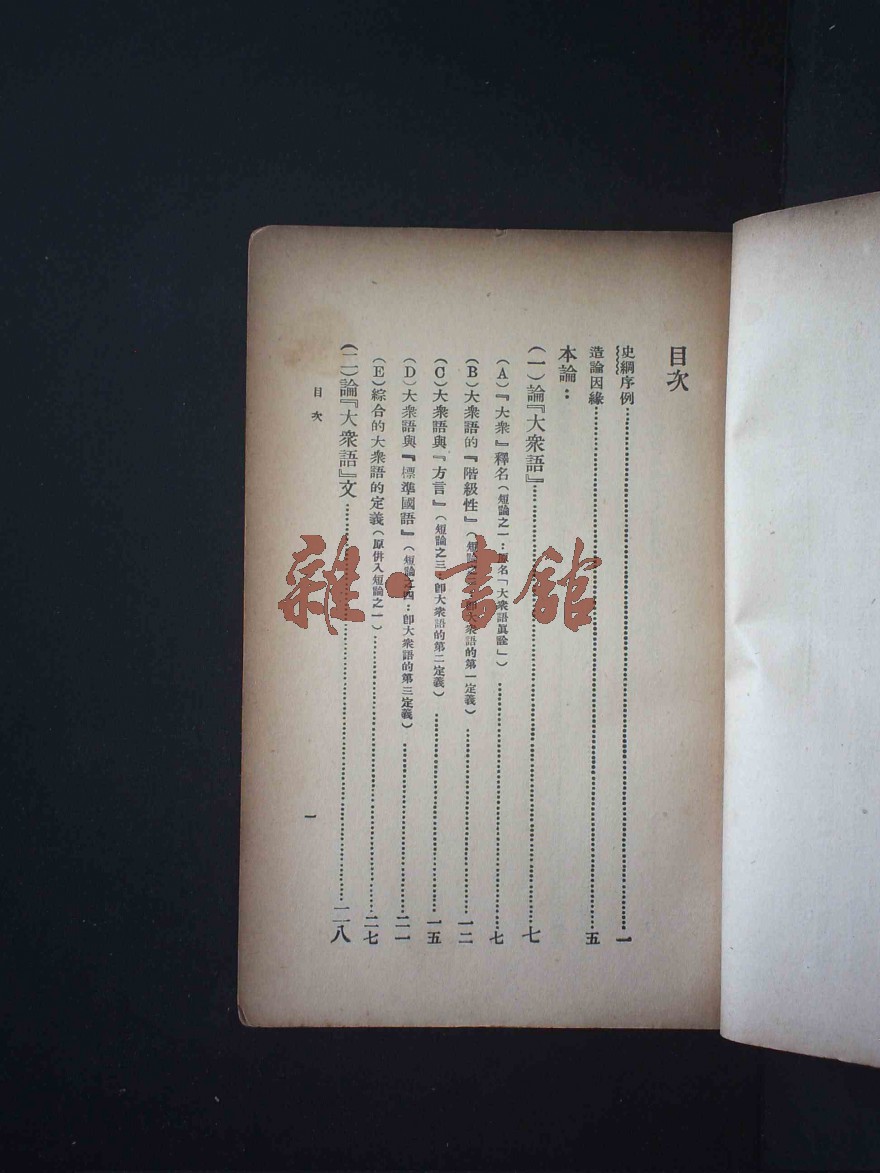 目次
史綱序例……一
造論因緣……五
本論：
（一）論『大衆語』……七
（A）『大衆』釋名（短論之一：原名「大衆語眞詮」）……七
（B）大衆語的『階級性』（短論之二：卽大衆語的第一定義）……一二
（C）大衆語與『方言』（短論之三：卽大衆語的第二定義）……一五
（D）大衆語與『標準國語』（短論之四：卽大衆語的第三定義）……二一
（E）綜合的大衆語的定義（原併入短論之一）……二七
（二）論『大衆語』文……二八
目次
一
雜·書館